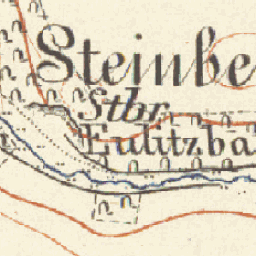 Steinbe
Stbr.
Eulitzba